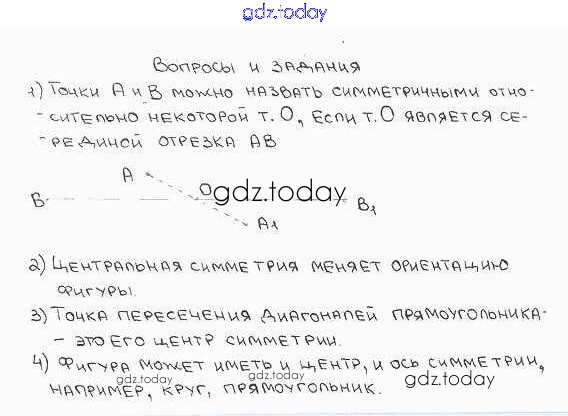 gdz.today
ВОПРОСЫ И ЗАДАНИЯ
1) ТОЧКИ А И В МОЖНО НАЗВАТЬ СИММЕТРИЧНЫМИ ОТНО-
-СИТЕЛЬНО НЕКОТОРОЙ Т. О, ЕСЛИ Т. О ЯВЛЯЕТСЯ СЕ-
-РЕДИНОЙ ОТРЕЗКА АВ
A
B O gdz.today B1
A1
2) ЦЕНТРАЛЬНАЯ СИММЕТРИЯ МЕНЯЕТ ОРИЕНТАЦИЮ
ФИГУРЫ.
3) ТОЧКА ПЕРЕСЕЧЕНИЯ ДИАГОНАЛЕЙ ПРЯМОУГОЛЬНИКА-
- ЭТО ЕГО ЦЕНТР СИММЕТРИИ.
4) ФИГУРА МОЖЕТ ИМЕТЬ И ЦЕНТР, И ОСЬ СИММЕТРИИ,
gdz.today gdz.today gdz.today
НАПРИМЕР, КРУГ, ПРЯМОУГОЛЬНИК.